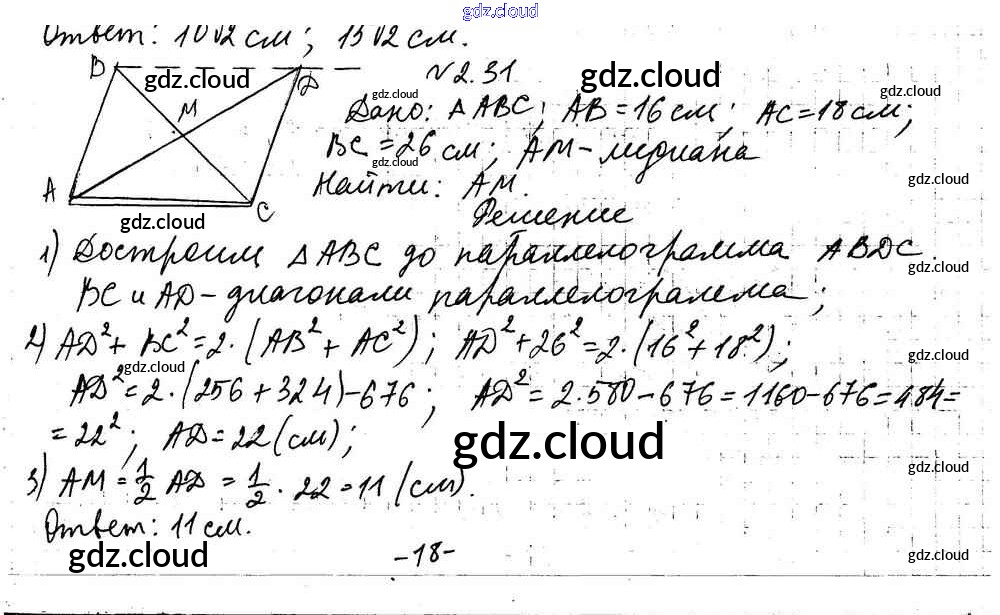 gdz.cloud
Ответ: 10√2 см; 15√2 см.
B D
gdz.cloud
M
A C
gdz.cloud
№ 2.31
gdz.cloud
gdz.cloud
gdz.cloud
Дано: △ABC; AB = 16 см; AC = 18 см;
BC = 26 см; AM – медиана
gdz.cloud
gdz.cloud
Найти: AM.
Решение
1) Достроим △ABC до параллелограмма ABDC.
gdz.cloud
BC и AD – диагонали параллелограмма;
2) AD² + BC² = 2·(AB² + AC²); AD² + 26² = 2·(16² + 18²);
gdz.cloud
gdz.cloud
AD² = 2·(256 + 324) – 676; AD² = 2·580 – 676 = 1160 – 676 = 484 =
= 22²; AD = 22 (см);
gdz.cloud
gdz.cloud
3) AM = 1/2 AD = 1/2 · 22 = 11 (см).
Ответ: 11 см.
gdz.cloud
gdz.cloud
gdz.cloud
–18–